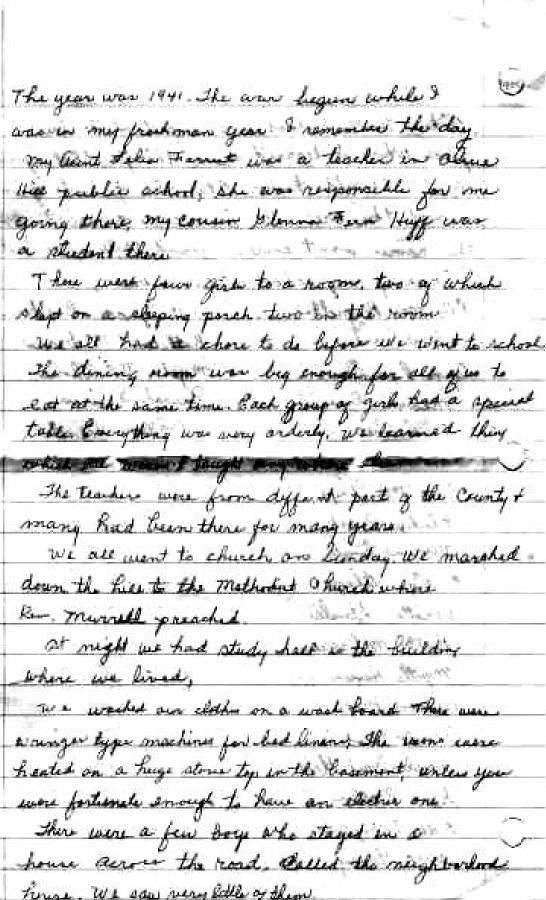 The year was 1941. The war begun while I
was in my freshman year. I remember the day.
My Aunt Felia Forrest was a teacher in Olive
Hill public school, she was responsible for me
going there, my cousin Glenna Fern Huff was
a student there
There were four girls to a room, two of which
slept on a sleeping porch two in the room
We all had a chore to do before we went to school
The dining room was big enough for all of us to
eat at the same time. Each group of girls had a special
table. Everything was very orderly. We learned
which taught any where
The teachers were from diffent part of the County &
many had been there for many years.
We all went to church on Sunday. We marshed
down the hill to the Methodist Church where
Rev. Murrell preached.
At night we had study hall in the building
where we lived,
We washed our clothes on a wash board There were
wringer type machines for bed linens, The irons were
heated on a huge stove top in the basement, unless you
were fortunate enough to have an electric one.
There were a few boys who stayed in a
house across the road. Called the neighborhood
house. We saw very little of them.